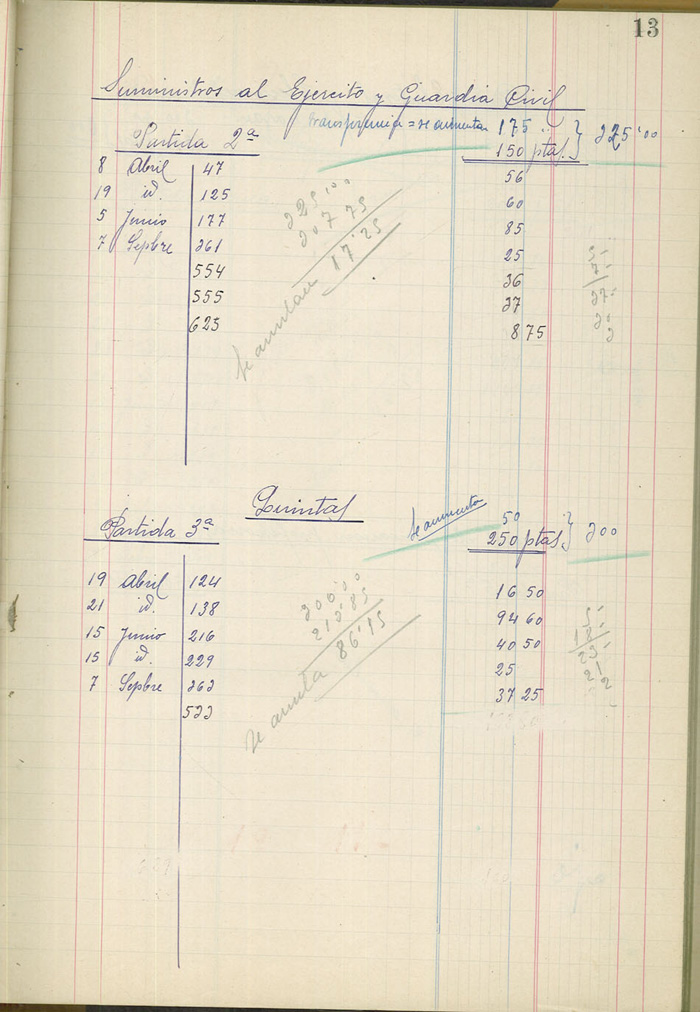 13
Suministros al Ejercito y Guardia Civil
Transferencia = se aumentan 175
Partida 2ª 150 ptas. } 325'00
8 Abril 47 56
19 id. 125 60
5 Junio 177 85
7 Sepbre 261 25
554 36
555 37
623 8 75
325'00
307 75
17'25
se anulan
Quintas
se aumenta 50
Partida 3ª 250 ptas. } 300
19 Abril 124 16 50
21 id. 138 94 60
15 Junio 216 40 50
15 id. 229 25
7 Sepbre 262 37 25
533
300'00
213'85
86'15
se anula